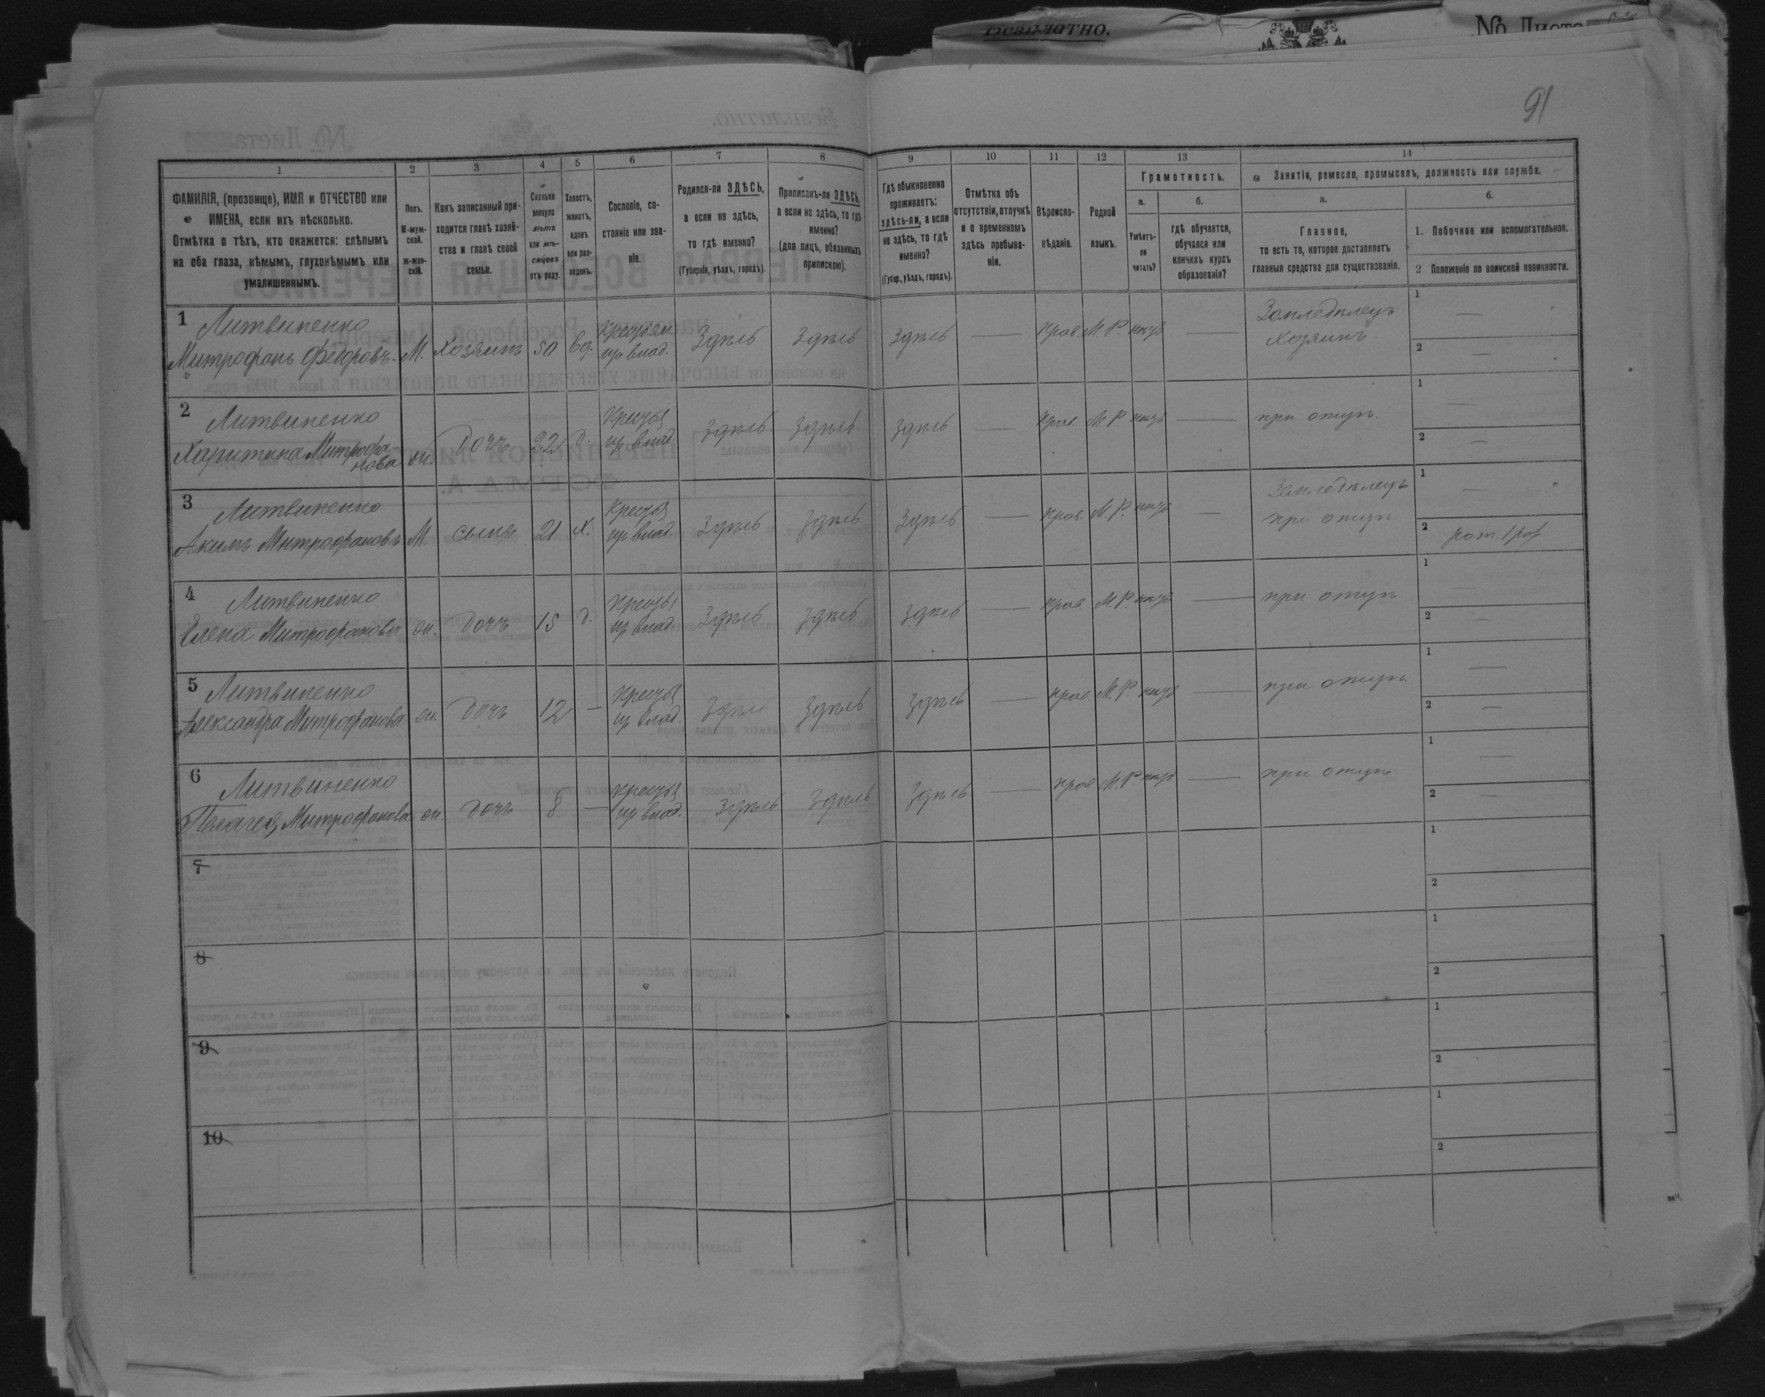 Безплатно.
91
1 2 3 4 5 6 7 8 9 10 11 12 13 14
ФАМИЛІЯ, (прозвище), ИМЯ и ОТЧЕСТВО или
ИМЕНА, если ихъ нѣсколько.
Отмѣтка о тѣхъ, кто окажется: слѣпымъ
на оба глаза, нѣмымъ, глухонѣмымъ или
умалишеннымъ.
Полъ.
М-муж-
ской.
Ж-жен-
скій.
Какъ записанный при-
ходится главѣ хозяй-
ства и главѣ своей
семьи.
Сколько
минуло
лѣтъ
или мѣ-
сяцевъ
отъ роду.
Холостъ,
женатъ,
вдовъ
или раз-
веденъ.
Сословіе, со-
стояніе или зва-
ніе.
Родился-ли ЗДѢСЬ,
а если не здѣсь,
то гдѣ именно?
(Губернія, уѣздъ, городъ).
Приписанъ-ли ЗДѢСЬ,
а если не здѣсь, то гдѣ
именно?
(для лицъ, обязанныхъ
припискою).
Гдѣ обыкновенно
проживаетъ:
здѣсь-ли, а если
не здѣсь, то гдѣ
именно?
(Губер., уѣздъ, городъ).
Отмѣтка объ
отсутствіи, отлучкѣ
и о временномъ
здѣсь пребыва-
ніи.
Вѣроиспо-
вѣданіе.
Родной
языкъ.
Грамотность.
а.
Умѣетъ-
ли
читать?
б.
гдѣ обучается,
обучался или
кончилъ курсъ
образованія?
Занятіе, ремесло, промыселъ, должность или служба.
а.
Главное,
то есть то, которое доставляетъ
главныя средства для существованія.
б.
1. Побочное или вспомогательное.
2 Положеніе по воинской повинности.
1 Литвиненко
Митрофанъ Федоровъ М. хозяинъ 50 вд. Крестьян. из влад. Здѣсь Здѣсь Здѣсь — Прав. М. Р. — Земледѣлецъ Хозяинъ
1 —
2 —
2 Литвиненко
Харитина Митрофа-
нова ж. дочь 22 д. из влад. Здѣсь Здѣсь Здѣсь — Прав. М. Р. — при отцѣ.
1 —
2 —
3 Литвиненко
Акимъ Митрофановъ М. сынъ 21 х. из влад. Здѣсь Здѣсь Здѣсь — Прав. М. Р. — Земледѣлецъ при отцѣ
1 —
2
4 Литвиненко
Елена Митрофанова ж. дочь 15 д. из влад. Здѣсь Здѣсь Здѣсь — Прав. М. Р. — при отцѣ
1 —
2 —
5 Литвиненко
Александра Митрофанова ж. дочь 12 — из влад. Здѣсь Здѣсь Здѣсь — Прав. М. Р. — при отцѣ
1 —
2 —
6 Литвиненко
Пелагея Митрофанова ж. дочь 8 — из влад. Здѣсь Здѣсь Здѣсь — Прав. М. Р. — при отцѣ
1 —
2 —
7
1
2
8
1
2
9
1
2
10
1
2